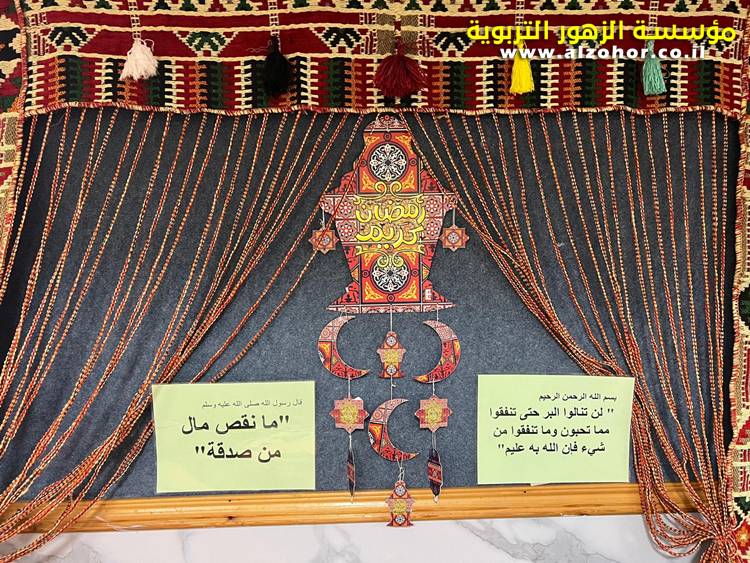 مؤسسة الزهور التربوية
www.alzohor.co.il
رمضان
كريم
بسم الله الرحمن الرحيم
" لن تنالوا البر حتى تنفقوا
مما تحبون وما تنفقوا من
شيء فان الله به عليم"
قال رسول الله صلى الله عليه وسلم
"ما نقص مال
من صدقة"